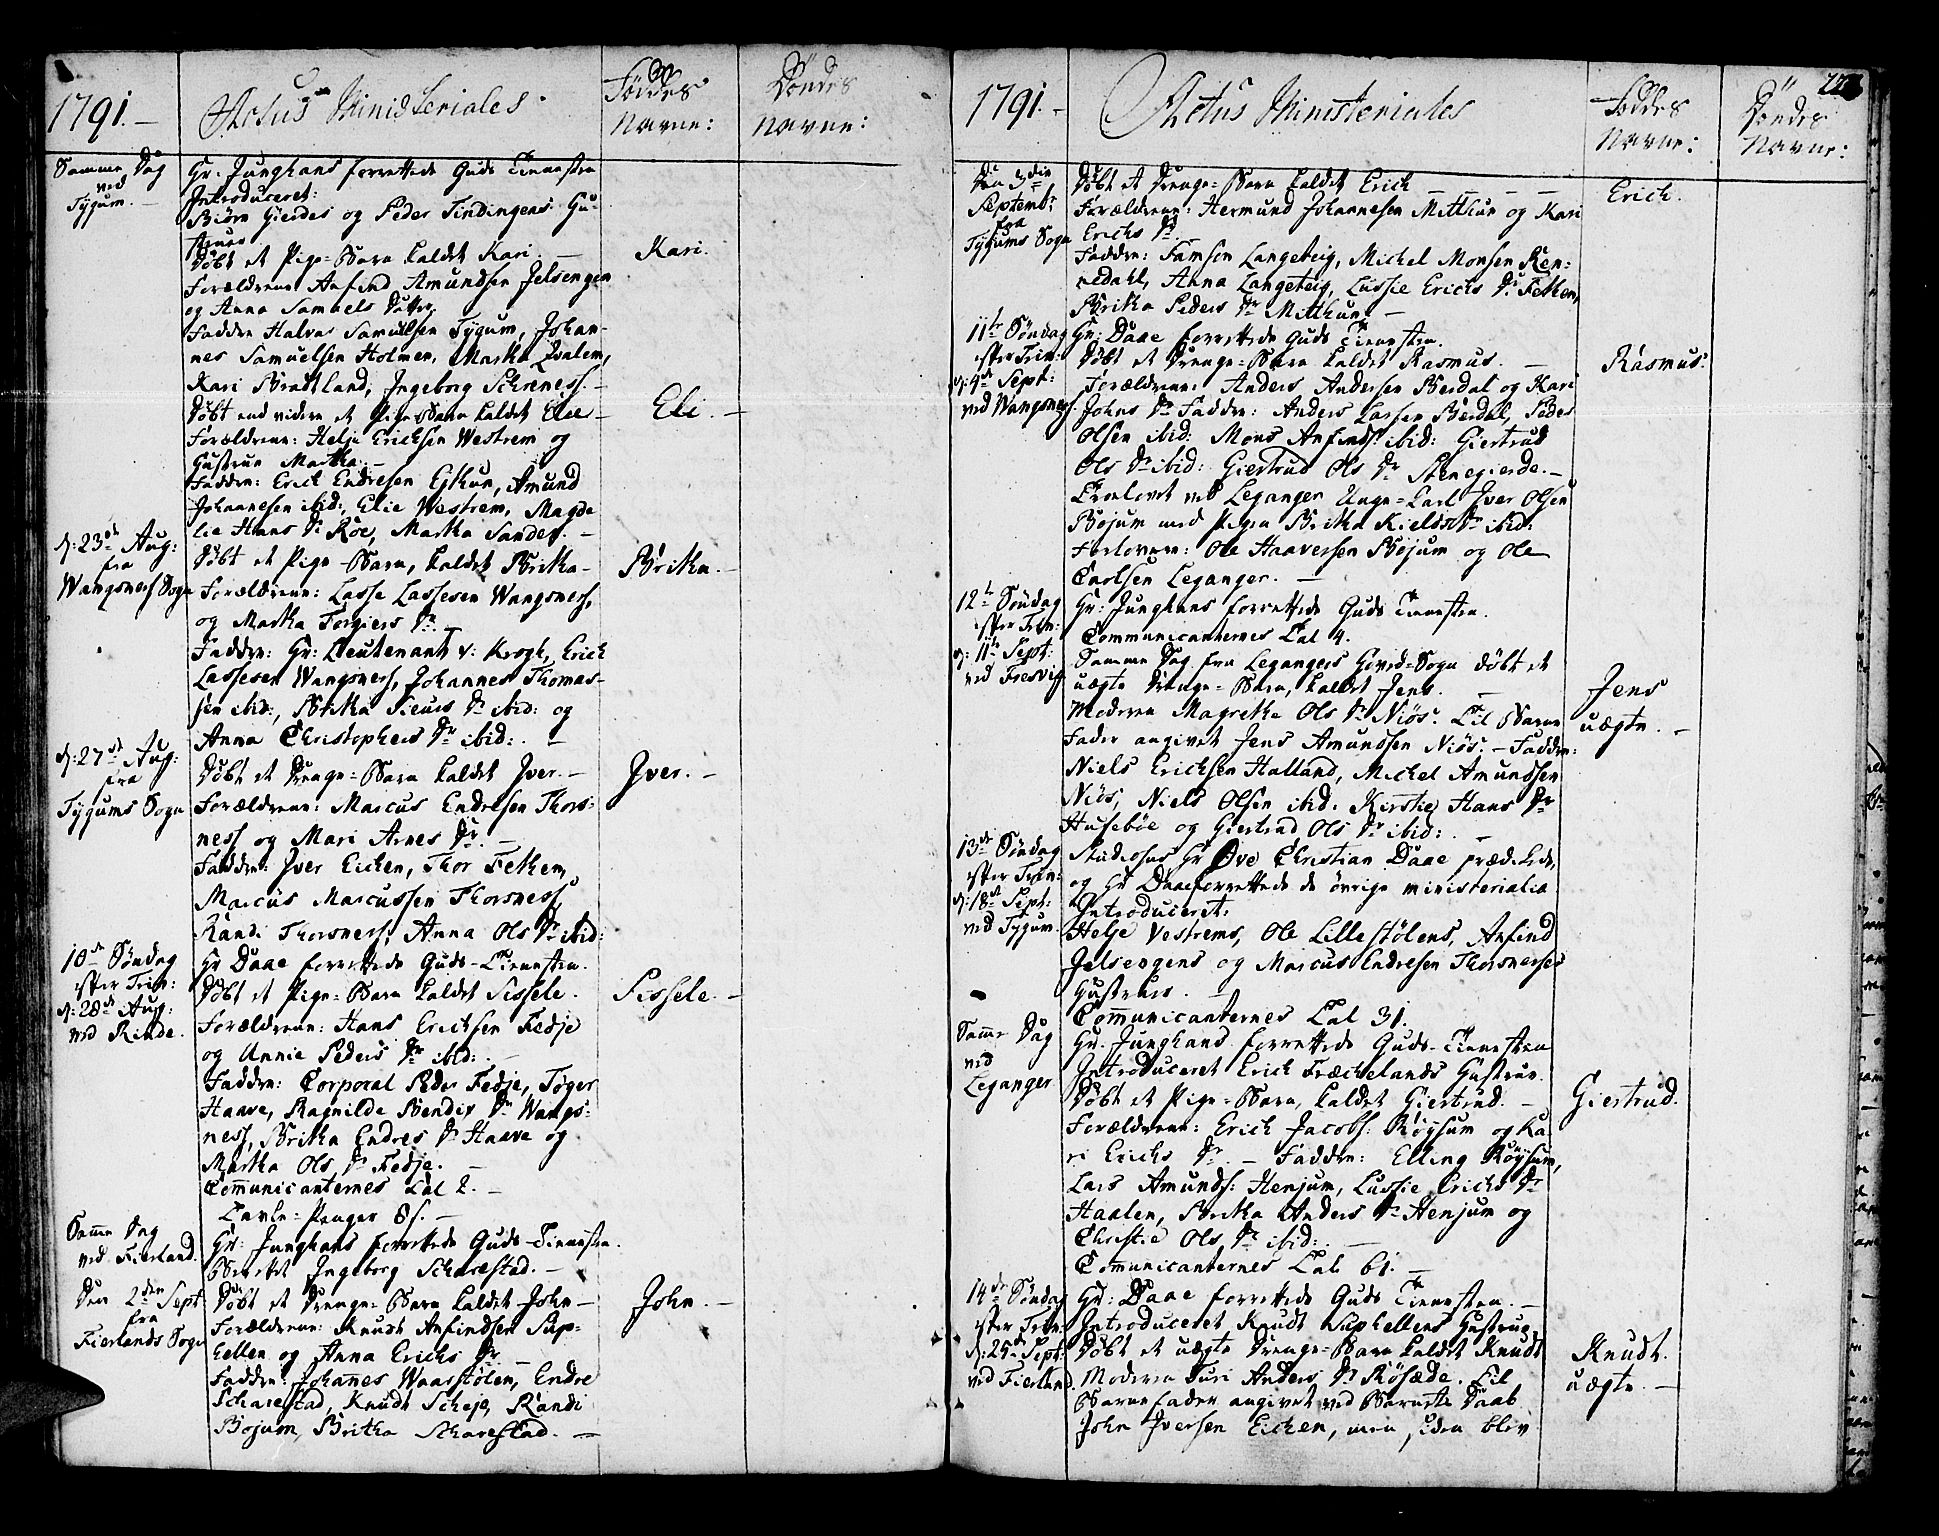 1791. Actus Ministeriales. Födde Navne: Döndes Navne:
Samme Dag ved Tygum.
Hr. Junghans forrettede Guds Tienesten
Introduceret:
Biörn Gierdes og Peder Tindingens Hu-
struer
Döbt et Pige-Barn kaldet Kari. Kari.
Forældrene Anfind Amundsen Jelsengen
og Anna Samuels Datter
Faddere Halvor Samuelsen Tygum, Johan-
nes Samuelsen Holmen, Martha Qvalem,
Kari Bradtland, Ingeborg Schreness.
Döbt end videre et Pige-Barn kaldet Elie Eli.
Forældrene: Helje Erichsen Westrem og
Hustrue Martha.
Faddere: Erich Endresen Eithun, Amund
Johannesen ibid:, Elie Westrem, Magde
lie Hans Dr Röe, Martha Sandes.
d: 23de Aug: fra Wangsness Sogn
Döbt et Pige-Barn, kaldet Britha Britha.
Forældrene: Lasse Lassesen Wangsness,
og Martha Torgiers Dr
Faddere: Hr: Lieutenant v: Krogh, Erich
Lassesen Wangsness, Johannes Thomas-
sen ibid:, Britha Sieurs Dr ibid: og
Anna Christophers Dr ibid:
d: 27de Aug: fra Tygums Sogn
Döbt et Drenge-Barn kaldet Jver. Jver.
Forældrene: Marcus Endresen Thors-
ness og Mari Arnes Dr.
Faddere: Jver Eichen, Thor Fethem,
Marcus Marcussen Thorsness,
Randi Thorsness, Anna Ols Dr ibid:
10de Söndag efter Trin: d: 28de Aug: ved Rinde.
Hr Daae forrettede Guds-Tienesten.
Döbt et Pige-Barn kaldet Sissele. Sissele.
Forældrene: Hans Erichsen Fedje
og Unnie Peders Dr ibid:
Faddere: Corporal Peder Fedje, Töger
Haave, Ragnilde Bendix Dr Wangs-
ness, Britha Endres Dr Haave og
Martha Ols Dr Fedje.
Communicanternes Tal 2.
Tavle-Penger 8 s.
Samme Dag ved Fierland.
Hr: Junghans forrettede Guds-Tienesten.
Ingeborg Scharestad.
Den 2den Sept fra Fierlands Sogn
Döbt et Drenge-Barn kaldet John John.
Forældrene: Knudt Anfindsen Sup-
hellen og Anna Erichs Dr
Faddere: Johannes Waarstölen, Endre
Scharestad, Knudt Scheje, Randi
Bojum, Britha Scharestad.
1791. Actus Ministeriales Födde Navne: Döndes Navne:
Den 3die Septembr fra Tygums Sogn
Döbt et Drenge-Barn kaldet Erich Erich.
Forældrene: Hermund Johannesen Mitthun og Kari
Erichs Dr
Faddere: Samson Langeteig, Michel Monsen Ren-
nedahl, Anna Langeteig, Lussie Erichs Dr Fethem,
Britha Peders Dr Mitthun.
11te Söndag efter Trin: d: 4de Sept: ved Wangsness.
Hr: Daae forrettede Guds Tienesten.
Döbt et Drenge-Barn kaldet Rasmus. Rasmus.
Forældrene: Anders Andersen Berdal og Kari
Johns Dr Faddere: Anders Larssen Berdal, Peder
Olsen ibid: Mons Anfinds: ibid: Giertrud
Ols Dr ibid: Giertrud Ols Dr Stenegierde.
Trolovet ved Leganger Unge-Karl Jver Olsen
Bojum med Pigen Britha Kields Dr ibid:
Forlovere: Ole Haaversen Bojum og Ole
Carlsen Leganger.
12te Söndag efter Trin: d: 11te Sept: ved Fresvig
Hr: Junghans forrettede Guds Tienesten.
Communicanternes Tal 4.
Samme Dag fra Legangers Hoved-Sogn döbt et
uægte Drenge-Barn, kaldet Jens. Jens uægte.
Moderen Magrethe Ols Dr Niös. Til Barne
Fader angivet Jens Amundsen Niös. Faddere:
Niels Erichsen Halland, Michel Amundsen
Niös, Niels Olsen ibid. Kirstie Hans Dr
Huseböe og Giertrud Ols Dr ibid:
13de Söndag efter Trin: d: 18de Sept: ved Tygum.
Studiosus Hr Ove Christian Daae prædikede,
og Hr Daae forrettede de övrige ministerialia
Introduceret:
Helje Vestrems, Ole Lillestölens, Anfind
Jelsengens og Marcus Endresen Thorsnesses
Hustruer.
Communicanternes Tal 31.
Samme Dag ved Leganger
Hr. Junghans forrettede Guds-Tienesten
Introduceret Erich Fræchelands Hustrue.
Döbt et Pige-Barn, kaldet Giertrud. Giertrud.
Forældrene: Erich Jacobs: Röysum og Ka-
ri Erichs Dr Faddere: Elling Röysum,
Lars Amunds: Henjum, Lussie Erichs Dr
Haalen, Britha Anders Dr Henjum og
Christie Ols Dr ibid:
Communicanternes Tal 61.
14de Söndag efter Trin: d: 25de Sept: ved Fierland.
Hr: Daae forrettede Guds Tienesten.
Introduceret Knudt Suphellens Hustrue
Döbt et uægte Drenge-Barn kaldet Knudt Knudt. uægte.
Moderen Turi Anders Dr Rösæde. Til
Barnefader angivet ved Barnets Daab
John Jversen Eichen, men siden blev